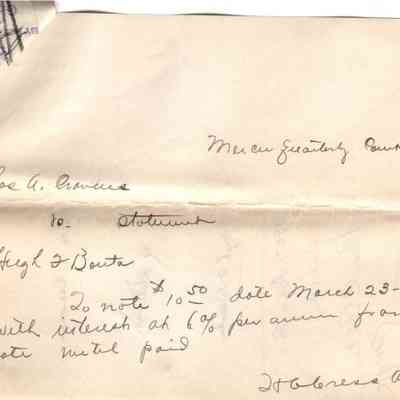 March Quarterly Court
as A.
to - Statement
Hugh F Bouta
To note $10.50 date March 23-
with interest at 6% per annum from
ate until paid